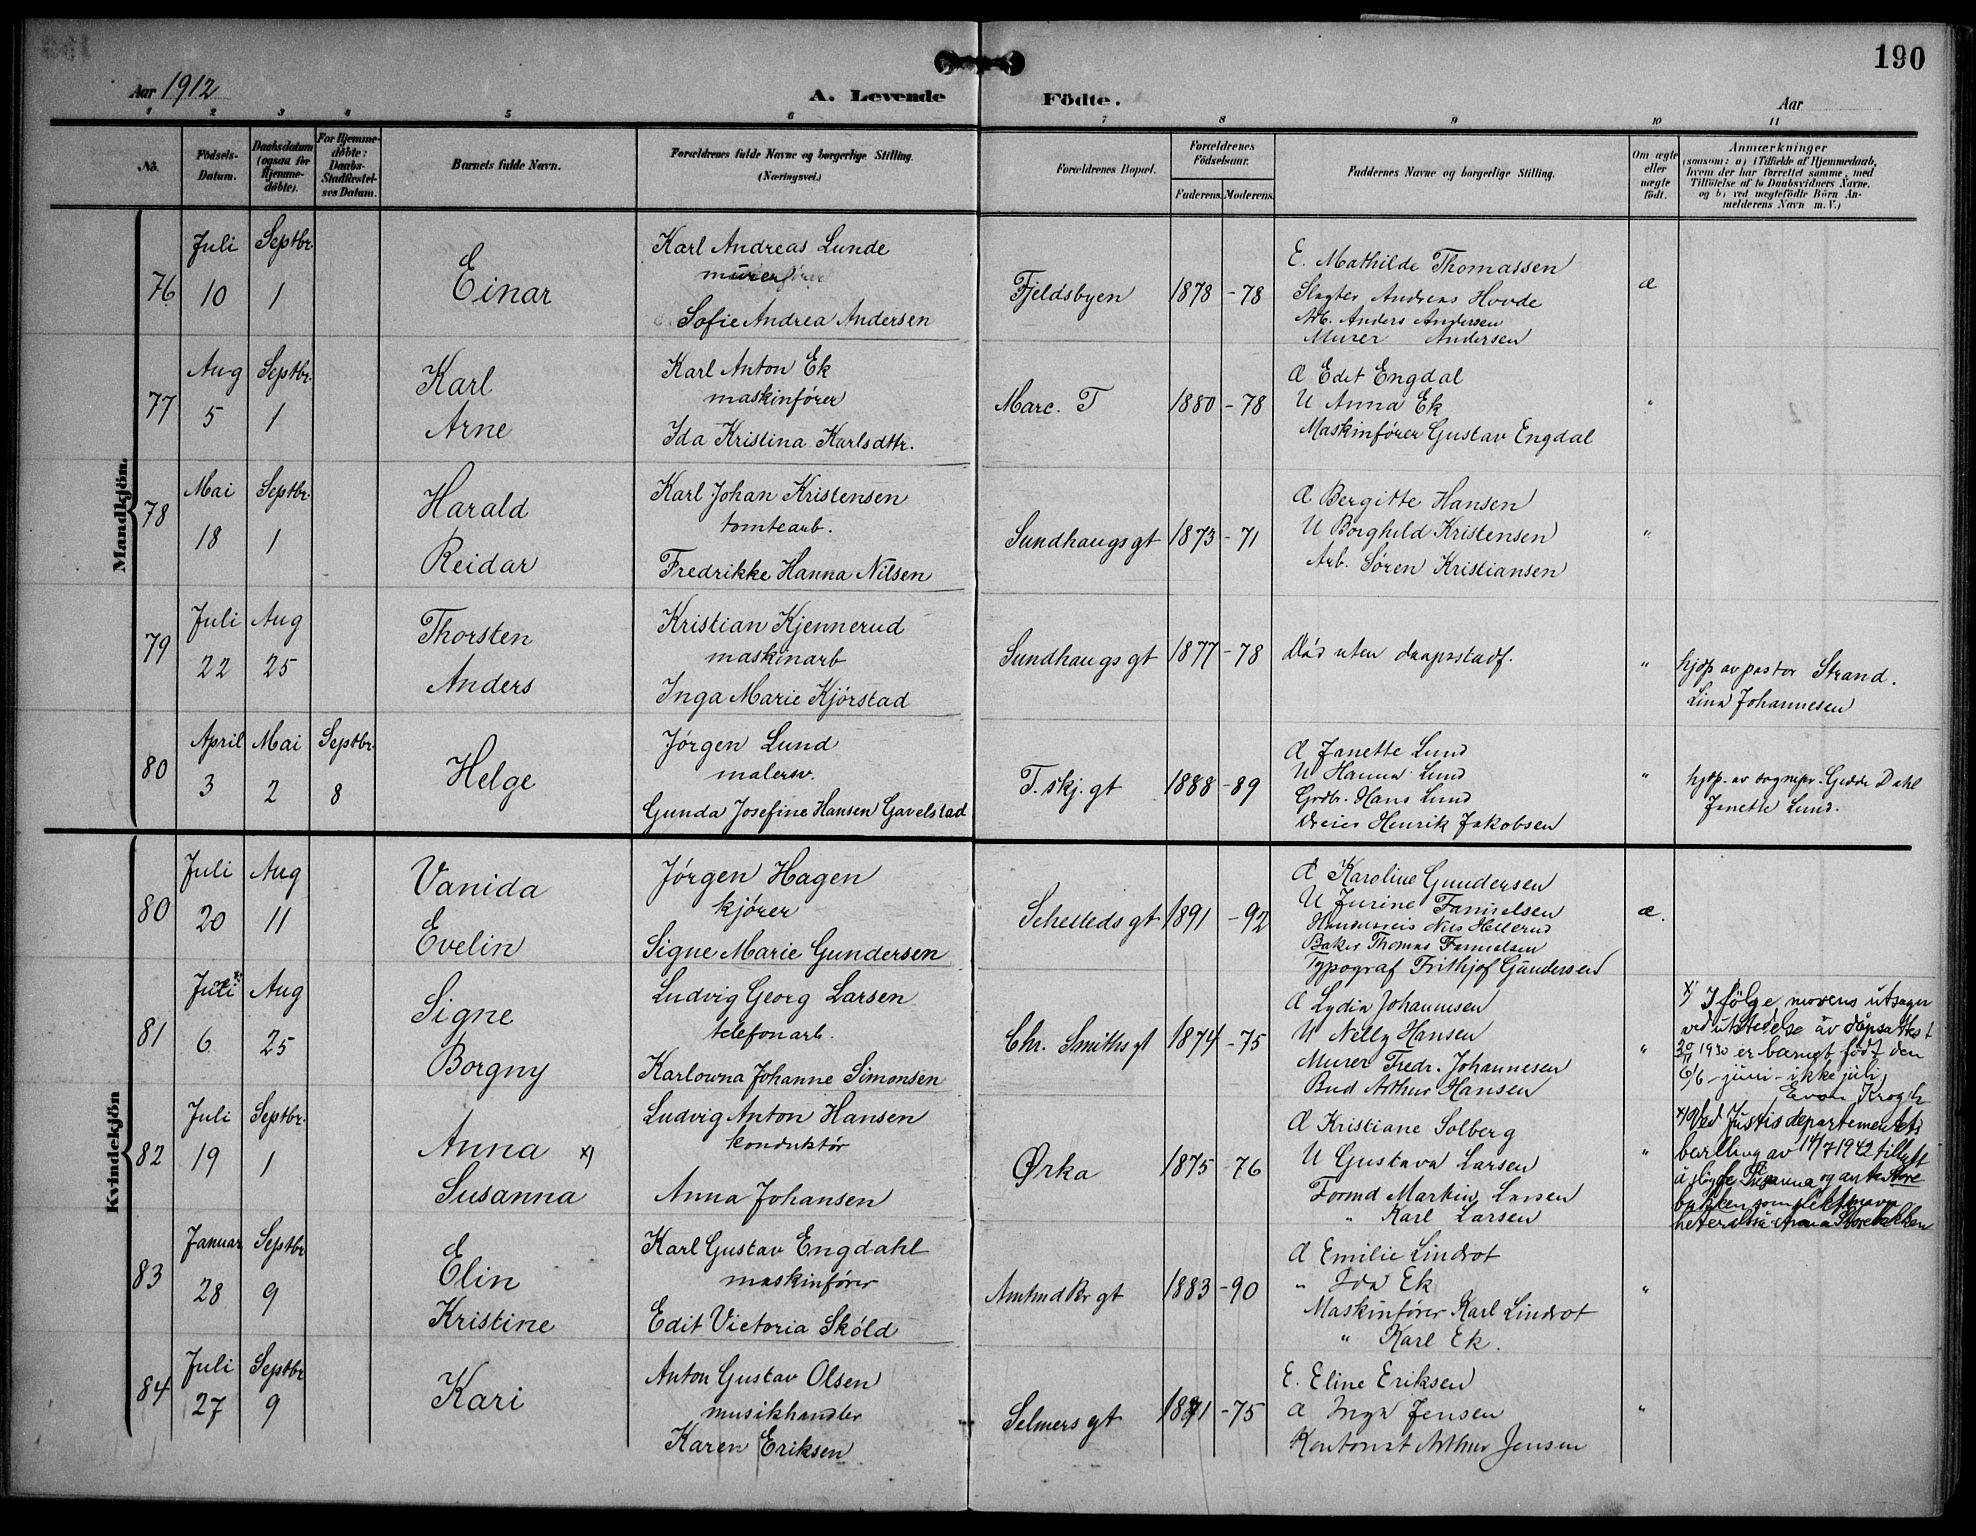 190
Aar 1912
A. Levende Födte.
Aar
1 2 3 4 5 6 7 8 9 10 11
No.
Födsels-Datum.
Daabsdatum (ogsaa for Hjemmedøbte).
For Hjemmedøbte: Daabs-Stadfæstelses Datum.
Barnets fulde Navn.
Forældrenes fulde Navne og borgerlige Stilling. (Næringsvei.)
Forældrenes Bopæl.
Forældrenes Födselsaar.
Faderens. Moderens.
Faddernes Navne og borgerlige Stilling.
Om ægte eller uægte födt.
Anmærkninger
(saasom: a) i Tilfælde af Hjemmedaab,
hvem der har forrettet samme, med
Tilföielse af to Daabsvidners Navne,
og b) ved uægtefödte Börn An-
melderens Navn m. V.)
Mandkjön.
76 Juli 10 Septbr. 1
Einar
Karl Andreas Lunde
murer
Sofie Andrea Andersen
Fjeldsbyen 1878 - 78
E. Mathilde Thomassen
Slagter Andreas Hovde
Arb. Anders Andersen
Murer Andersen
æ
77 Aug 5 Septbr. 1
Karl
Arne
Karl Anton Ek
maskinfører
Ida Kristina Karlsdttr.
Marc. T 1880 - 78
A Edit Engdal
U Anna Ek
Maskinfører Gustav Engdal
"
78 Mai 18 Septbr. 1
Harald
Reidar
Karl Johan Kristensen
tomtearb.
Fredrikke Hanna Nilsen
Sundhaugsgt 1873 - 71
A. Bergitte Hansen
U Borghild Kristensen
Arb. Søren Kristiansen
"
79 Juli 22 Aug 25
Thorsten
Anders
Kristian Kjennerud
maskinarb
Inga Marie Kjørstad
Sundhaugsgt 1877 - 78
Død uten daapsstadf.
"
hjdp av pastor Strand.
Lina Johannesen
80 April 3 Mai 2 Septbr. 8
Helge
Jørgen Lund
malersv.
Gunda Josefine Hansen Gavelstad
T. skj. gt 1888 - 89
A Janette Lund
U Hanna Lund
Grdbr. Hans Lund
Dreier Henrik Jakobsen
"
hjdp. av sognepr. Gedde Dahl
Janette Lund.
Kvindekjön
80 Juli 20 Aug 11
Vanida
Evelin
Jørgen Hagen
kjører
Signe Marie Gundersen
Schesteds gt 1891 - 92
A Karoline Gundersen
U Jurine
Nils Hellerud
Baker Thomas
Typograf Frithjof Gundersen
æ.
81 Juli x) 6 Aug 25
Signe
Borgny
Ludvig Georg Larsen
telefonarb.
Karlowna Johanne Simonsen
Chr. Smiths gt 1874 - 75
A Lydia Johannesen
U Nelly Hansen
Murer Fredr. Johannesen
Bud Arthur Hansen
"
x) Ifölge morens utsagn
ved utstedelse av dåpsattest
1930 er barnet født den
6/6 - juni - ikke juli
Krogh
82 Juli 19 Septbr. 1
Anna x)
Susanna
Ludvig Anton Hansen
konduktør
Anna Johansen
Ørka 1875 - 76
A Kristiane Solberg
U Gustava Larsen
Formd Martin Larsen
" Karl Larsen
"
x) Ved Justisdepartementets
bevilling av 14/7 1942 tillatt
å sløyfe Susanna og anta Store
bakken som slektsnavn
heter altså Anna Storebakken
83 Januar 28 Septbr 9
Elin
Kristine
Karl Gustav Engdahl
maskinfører
Edit Victoria Sköld
Amtmd Br gt 1883 - 90
A Emilie Lindrot
" Ida Ek
Maskinfører Karl Lindrot
" Karl Ek.
"
84 Juli 27 Septbr 9
Kari
Anton Gustav Olsen
musikhandler
Karen Eriksen
Selmers gt 1871 - 75
E. Eline Eriksen
A Inga Jensen
Kontorist Arthur Jensen
"